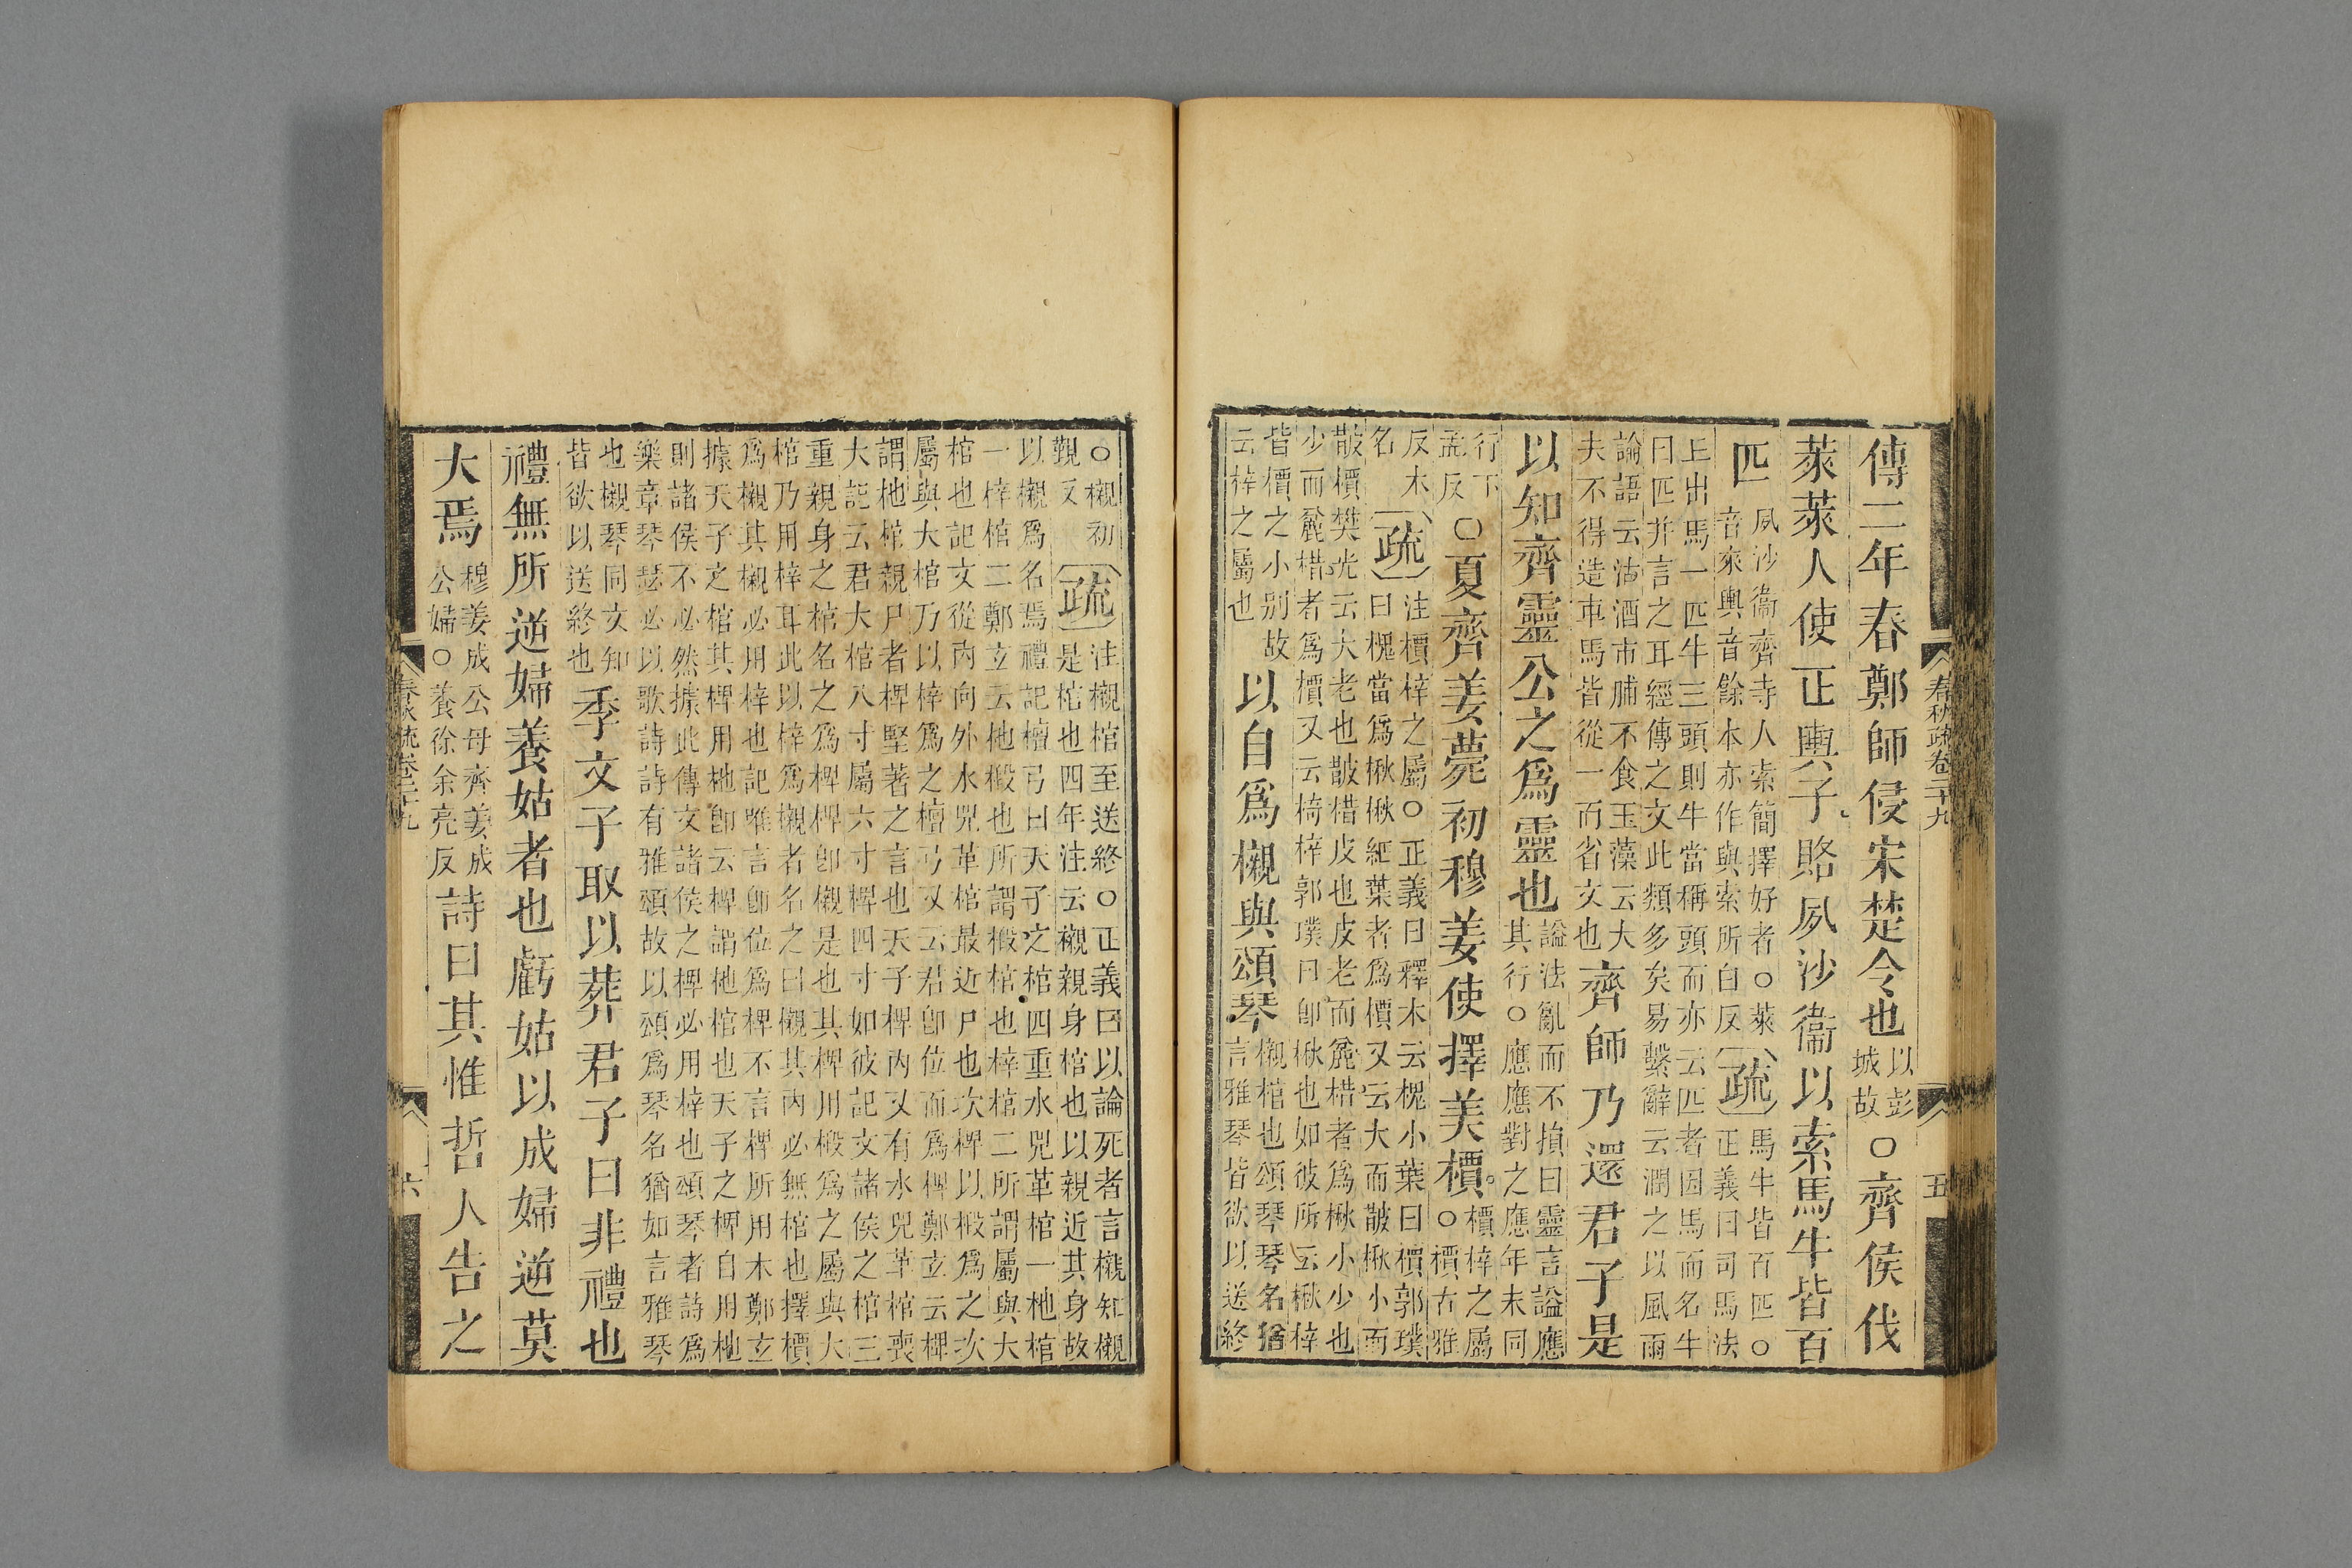 傳二年春鄭師侵宋楚令也以彭城故○齊侯伐
萊萊人使正輿子賂夙沙衞以索馬牛皆百
匹夙沙衞齊寺人索簡擇好者○萊音來輿音餘本亦作與索所白反疏馬牛皆百匹○正義曰司馬法
上出馬一匹牛三頭則牛當稱頭而亦云匹者因馬而名牛
曰匹并言之耳經傳之文此類多矣易繫辭云潤之以風雨
論語云沽酒市脯不食玉藻云大
夫不得造車馬皆從一而省文也齊師乃還君子是
以知齊靈公之爲靈也謚法亂而不損曰靈言謚應其行○應應對之應年末同
行下孟反○夏齊姜薨初穆姜使擇美檟檟梓之屬○檟古雅
反木名疏注檟梓之屬○正義曰釋木云槐小葉曰檟郭璞
曰槐當爲楸楸細葉者爲檟又云大而皵楸小而
皵檟樊光云大老也皵楷皮也皮老而麄楷者爲楸小少也
少而麄楷者爲檟又云椅梓郭璞曰卽楸也如彼所云楸梓
皆檟之小别故
云梓之屬也以自爲櫬與頌琴櫬棺也頌琴琴名猶言雅琴皆欲以送終
○櫬初覲反疏注櫬棺至送終○正義曰以論死者言櫬知櫬
是棺也四年注云襯親身棺也以親近其身故
以櫬爲名焉禮記檀弓曰天子之棺四重水兕革棺一杝棺
一梓棺二鄭立云杝椴也所謂椴棺也梓棺二所謂屬與大
棺也記文從內向外水兕革棺最近尸也次椑以椴爲之次
屬與大棺乃以梓爲之檀弓又云君卽位而爲椑鄭立云椑
謂杝棺親尸者椑堅著之言也天子椑內又有水兕革棺喪
大記云君大棺八寸屬六寸椑四寸如彼記文諸侯之棺三
重親身之棺名之爲椑椑卽櫬是也其椑用椴爲之屬與大
棺乃用梓耳此以梓爲櫬者名之曰櫬其內必無棺也擇檟
爲櫬其櫬必用梓也記唯言卽位爲椑不言椑所用木鄭立
據天子之棺其椑用杝卽云椑謂杝棺也天子之椑自用杝
則諸侯不必然據此傳文諸侯之椑必用梓也頌琴者詩爲
樂章琴瑟必以歌詩詩有雅頌故以頌爲琴名猶如言雅琴
也櫬琴同文知
皆欲以送終也季文子取以葬君子曰非禮也
禮無所逆婦養姑者也虧姑以成婦逆莫
大焉穆姜成公母齊姜成公婦○養徐余亮反詩曰其惟哲人告之
春秋疏卷二十九 五
春秋疏卷二十九 六